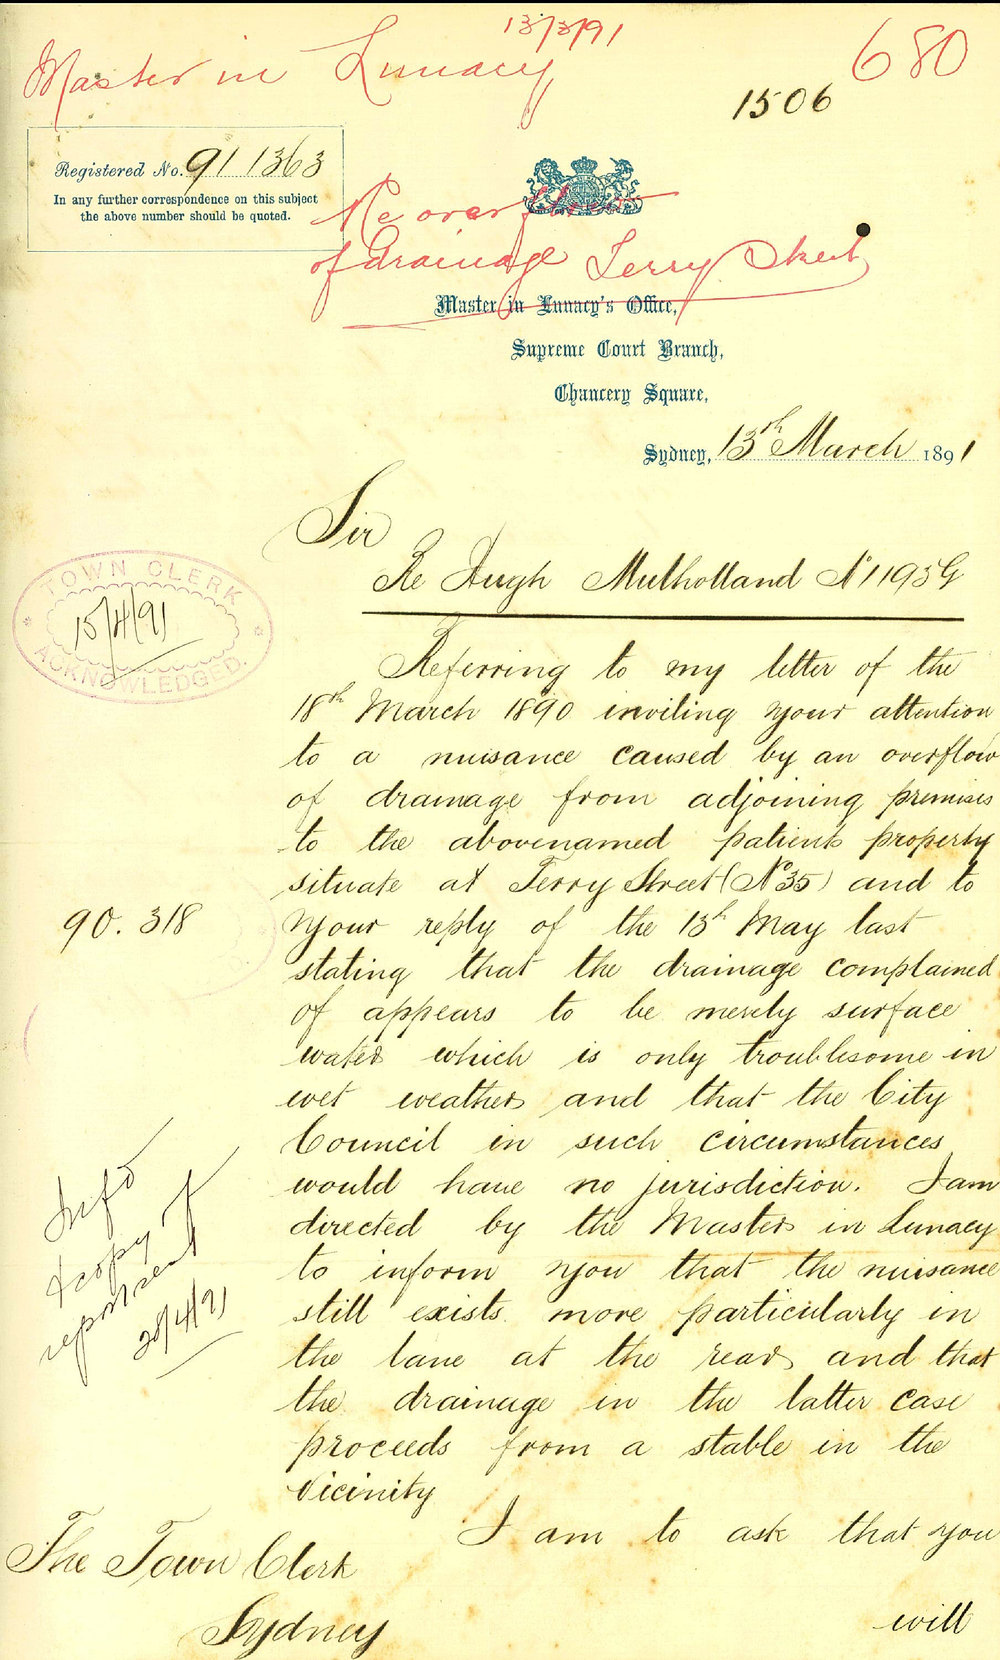 Master in Lunacy
13/3/91
680
1506
Registered No. 91 1363
In any further correspondence on this subject
the above number should be quoted.
Re overflow
of drainage Terry Street
Master in Lunacy's Office,
Supreme Court Branch,
Chancery Square,
Sydney, 13th March 1891
Sir
Re Hugh Mulholland No 1193G
TOWN CLERK
15/4/91
ACKNOWLEDGED.
Referring to my letter of the
18th March 1890 inviting your attention
to a nuisance caused by an overflow
of drainage from adjoining premises
to the abovenamed patients property
situate at Terry Street (No 35) and to
90. 318
your reply of the 13th May last
stating that the drainage complained
of appears to be merely surface
water which is only troublesome in
wet weather and that the City
Council in such circumstances
would have no jurisdiction. I am
directed by the Master in Lunacy
to inform you that the nuisance
still exists more particularly in
the lane at the rear and that
the drainage in the latter case
proceeds from a stable in the
vicinity
Info
& copy of
report sent
28/4/91
I am to ask that you
will
The Town Clerk
Sydney